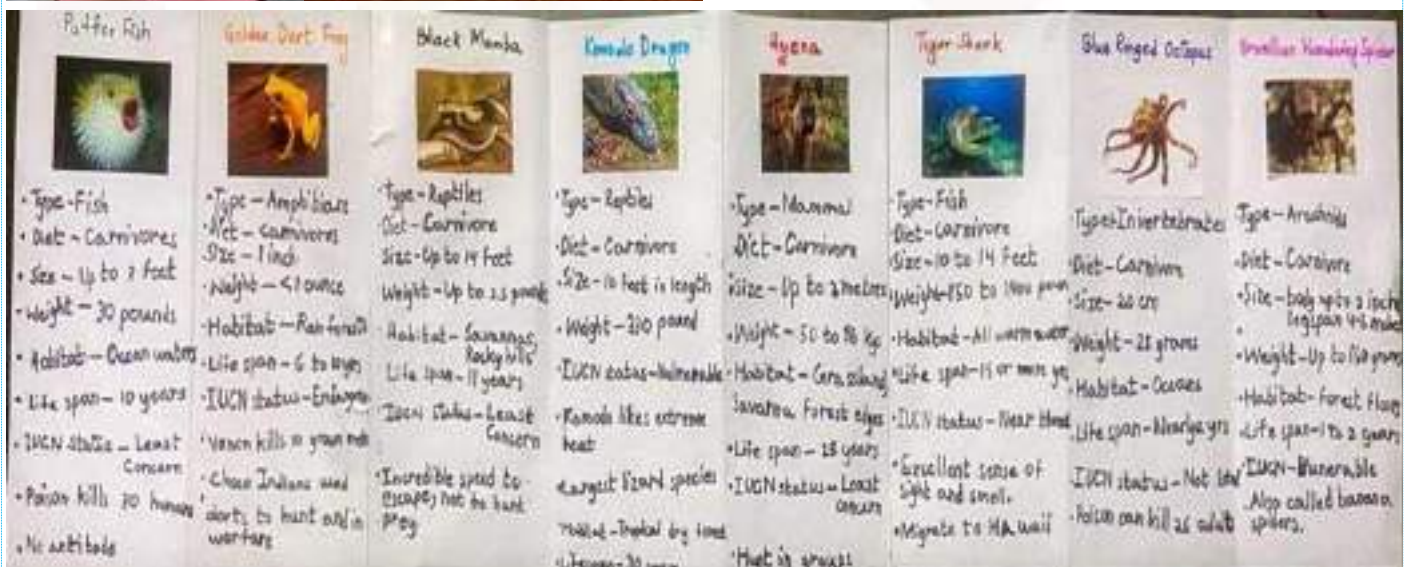 Puffer Fish
• Type - Fish
• Diet - Carnivores
• Size - Up to 2 feet
• Weight - 30 pounds
• Habitat - Ocean waters
• Life span - 10 years
• IUCN status - Least
Concern
• Poison kills 30 humans
• No antidote
Golden Dart Frog
• Type - Amphibians
• Diet - carnivores
Size - 1 inch
• Weight - <1 ounce
• Habitat - Rain forests
• Life span - 6 to
• IUCN status -
• Venom kills 10 grown
• Choco Indians used
darts to hunt and in
warfare
Black Mamba
• Type - Reptiles
Diet - Carnivore
Size - Up to 14 feet
Weight - Up to 3.5 pounds
Habitat - Savannas,
Rocky hills
Life span - 11 years
IUCN status - Least
Concern
• Incredible speed to
escape, not to hunt
prey
Komodo Dragon
• Type - Reptiles
• Diet - Carnivore
• Size - 10 feet in length
• Weight - pound
• IUCN status - Vulnerable
• Komodo likes extreme
heat
Largest lizard species
Habitat - Tropical dry forest
Hyena
• Type - Mammal
Diet - Carnivore
• Size - Up to 2 metres
• Weight - 50 to 86 kg
• Habitat -
Savanna forest edges
• Life span - years
• IUCN status - Least
Concern
• Hunt in groups
Tiger Shark
• Type - Fish
Diet - carnivore
• Size - 10 to 14 feet
• Weight - 850 to 1400
• Habitat - All warm
• Life span - 15 or more
• IUCN status - Near
• Excellent sense of
sight and smell.
• Migrate to HAwaii
Blue Ringed Octopus
Type - Invertebrates
• Diet - Carnivore
• Size - 20 cm
Weight - 28 grams
• Habitat - Oceans
• Life span -
IUCN status - Not
• Poison can kill 26
Brazilian Wandering Spider
• Type - Arachnids
• Diet - Carnivore
• Size - body up to 2
legspan 4-6
• Weight - Up to
• Habitat - Forest
• Life span - 1 to 2 years
• IUCN -
Also called banana
spiders.